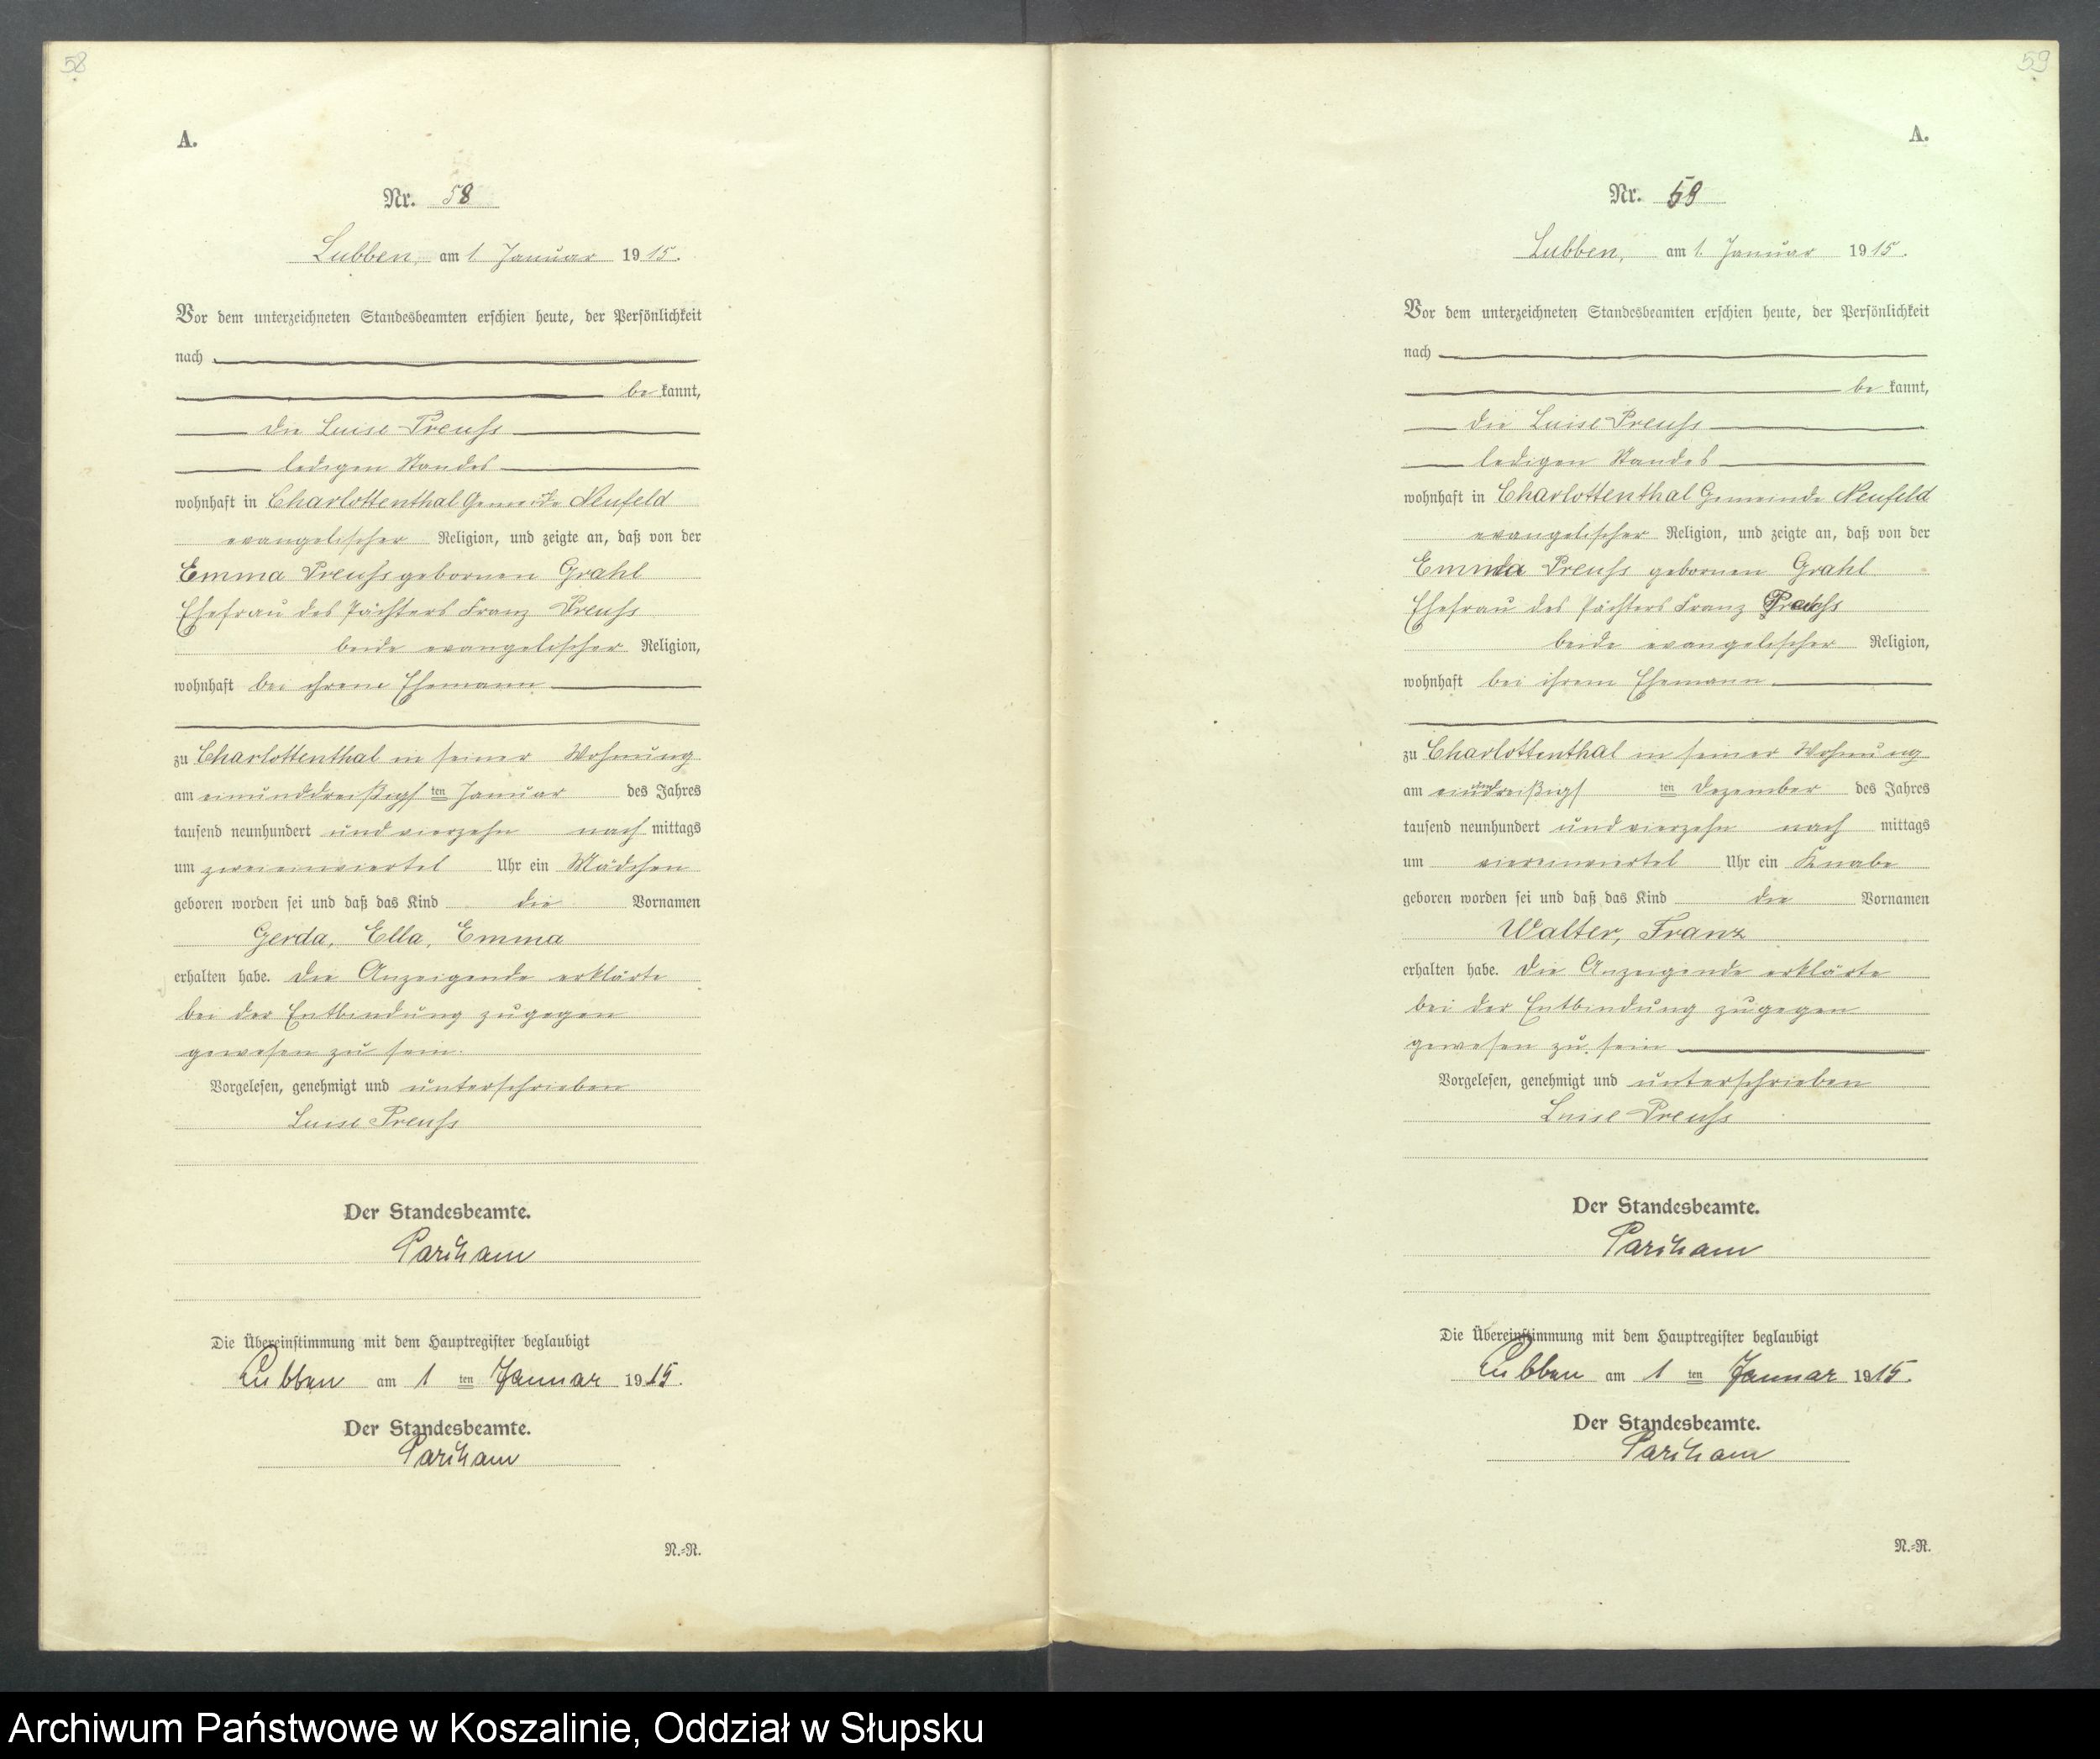 58
A.
Nr. 58
Lubben, am 1. Januar 1915.
Vor dem unterzeichneten Standesbeamten erschien heute, der Persönlichkeit
nach
be kannt,
die Luise Preuß
ledigen Standes
wohnhaft in Charlottenthal Gemeinde Neufeld
evangelischer Religion, und zeigte an, daß von der
Emma Preuß gebornen Grahl
Ehefrau des Pächters Franz Preuß
beide evangelischer Religion,
wohnhaft bei ihrem Ehemann
zu Charlottenthal in seiner Wohnung
am einunddreißigs ten Januar des Jahres
tausend neunhundert und vierzehn nach mittags
um zweieinviertel Uhr ein Mädchen
geboren worden sei und daß das Kind die Vornamen
Gerda, Ella, Emma
erhalten habe. Die Anzeigende erklärte
bei der Entbindung zugegen
gewesen zu sein.
Vorgelesen, genehmigt und unterschrieben
Luise Preuß
Der Standesbeamte.
Die Übereinstimmung mit dem Hauptregister beglaubigt
Lubben am 1 ten Januar 1915.
Der Standesbeamte.
N.=R.
59
A.
Nr. 59
Lubben, am 1. Januar 1915.
Vor dem unterzeichneten Standesbeamten erschien heute, der Persönlichkeit
nach
be kannt,
die Luise Preuß
ledigen Standes
wohnhaft in Charlottenthal Gemeinde Neufeld
evangelischer Religion, und zeigte an, daß von der
Emma Preuß gebornen Grahl
Ehefrau des Pächters Franz Preuß
beide evangelischer Religion,
wohnhaft bei ihrem Ehemann
zu Charlottenthal in seiner Wohnung
am einunddreißigs ten Dezember des Jahres
tausend neunhundert und vierzehn nach mittags
um viereinviertel Uhr ein Knabe
geboren worden sei und daß das Kind die Vornamen
Walter, Franz
erhalten habe. Die Anzeigende erklärte
bei der Entbindung zugegen
gewesen zu sein
Vorgelesen, genehmigt und unterschrieben
Luise Preuß
Der Standesbeamte.
Die Übereinstimmung mit dem Hauptregister beglaubigt
Lubben am 1 ten Januar 1915.
Der Standesbeamte.
N.=R.
Archiwum Państwowe w Koszalinie, Oddział w Słupsku